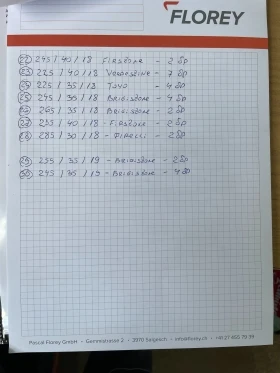 FLOREY
22 245/40/18 FIRSTONE - 2 SD
23 225/40/18 VREDESZINE - 3 SD
24 225/35/18 TOYO - 4 SD
25 245/35/18 BRIGISTONE - 4 SD
26 265/35/18 BRIGISTONE - 2 SD
27 235/40/18 - FIRSTONE - 2 SD
28 285/30/18 - PIRELLI - 2 SD
29 255/35/19 - BRIGISTONE - 2 SD
30 245/35/19 - BRIGISTONE - 4 SD
Pascal Florey GmbH • Gemmistrasse 2 • 3970 Salgesch • info@florey.ch • +41 27 455 79 39